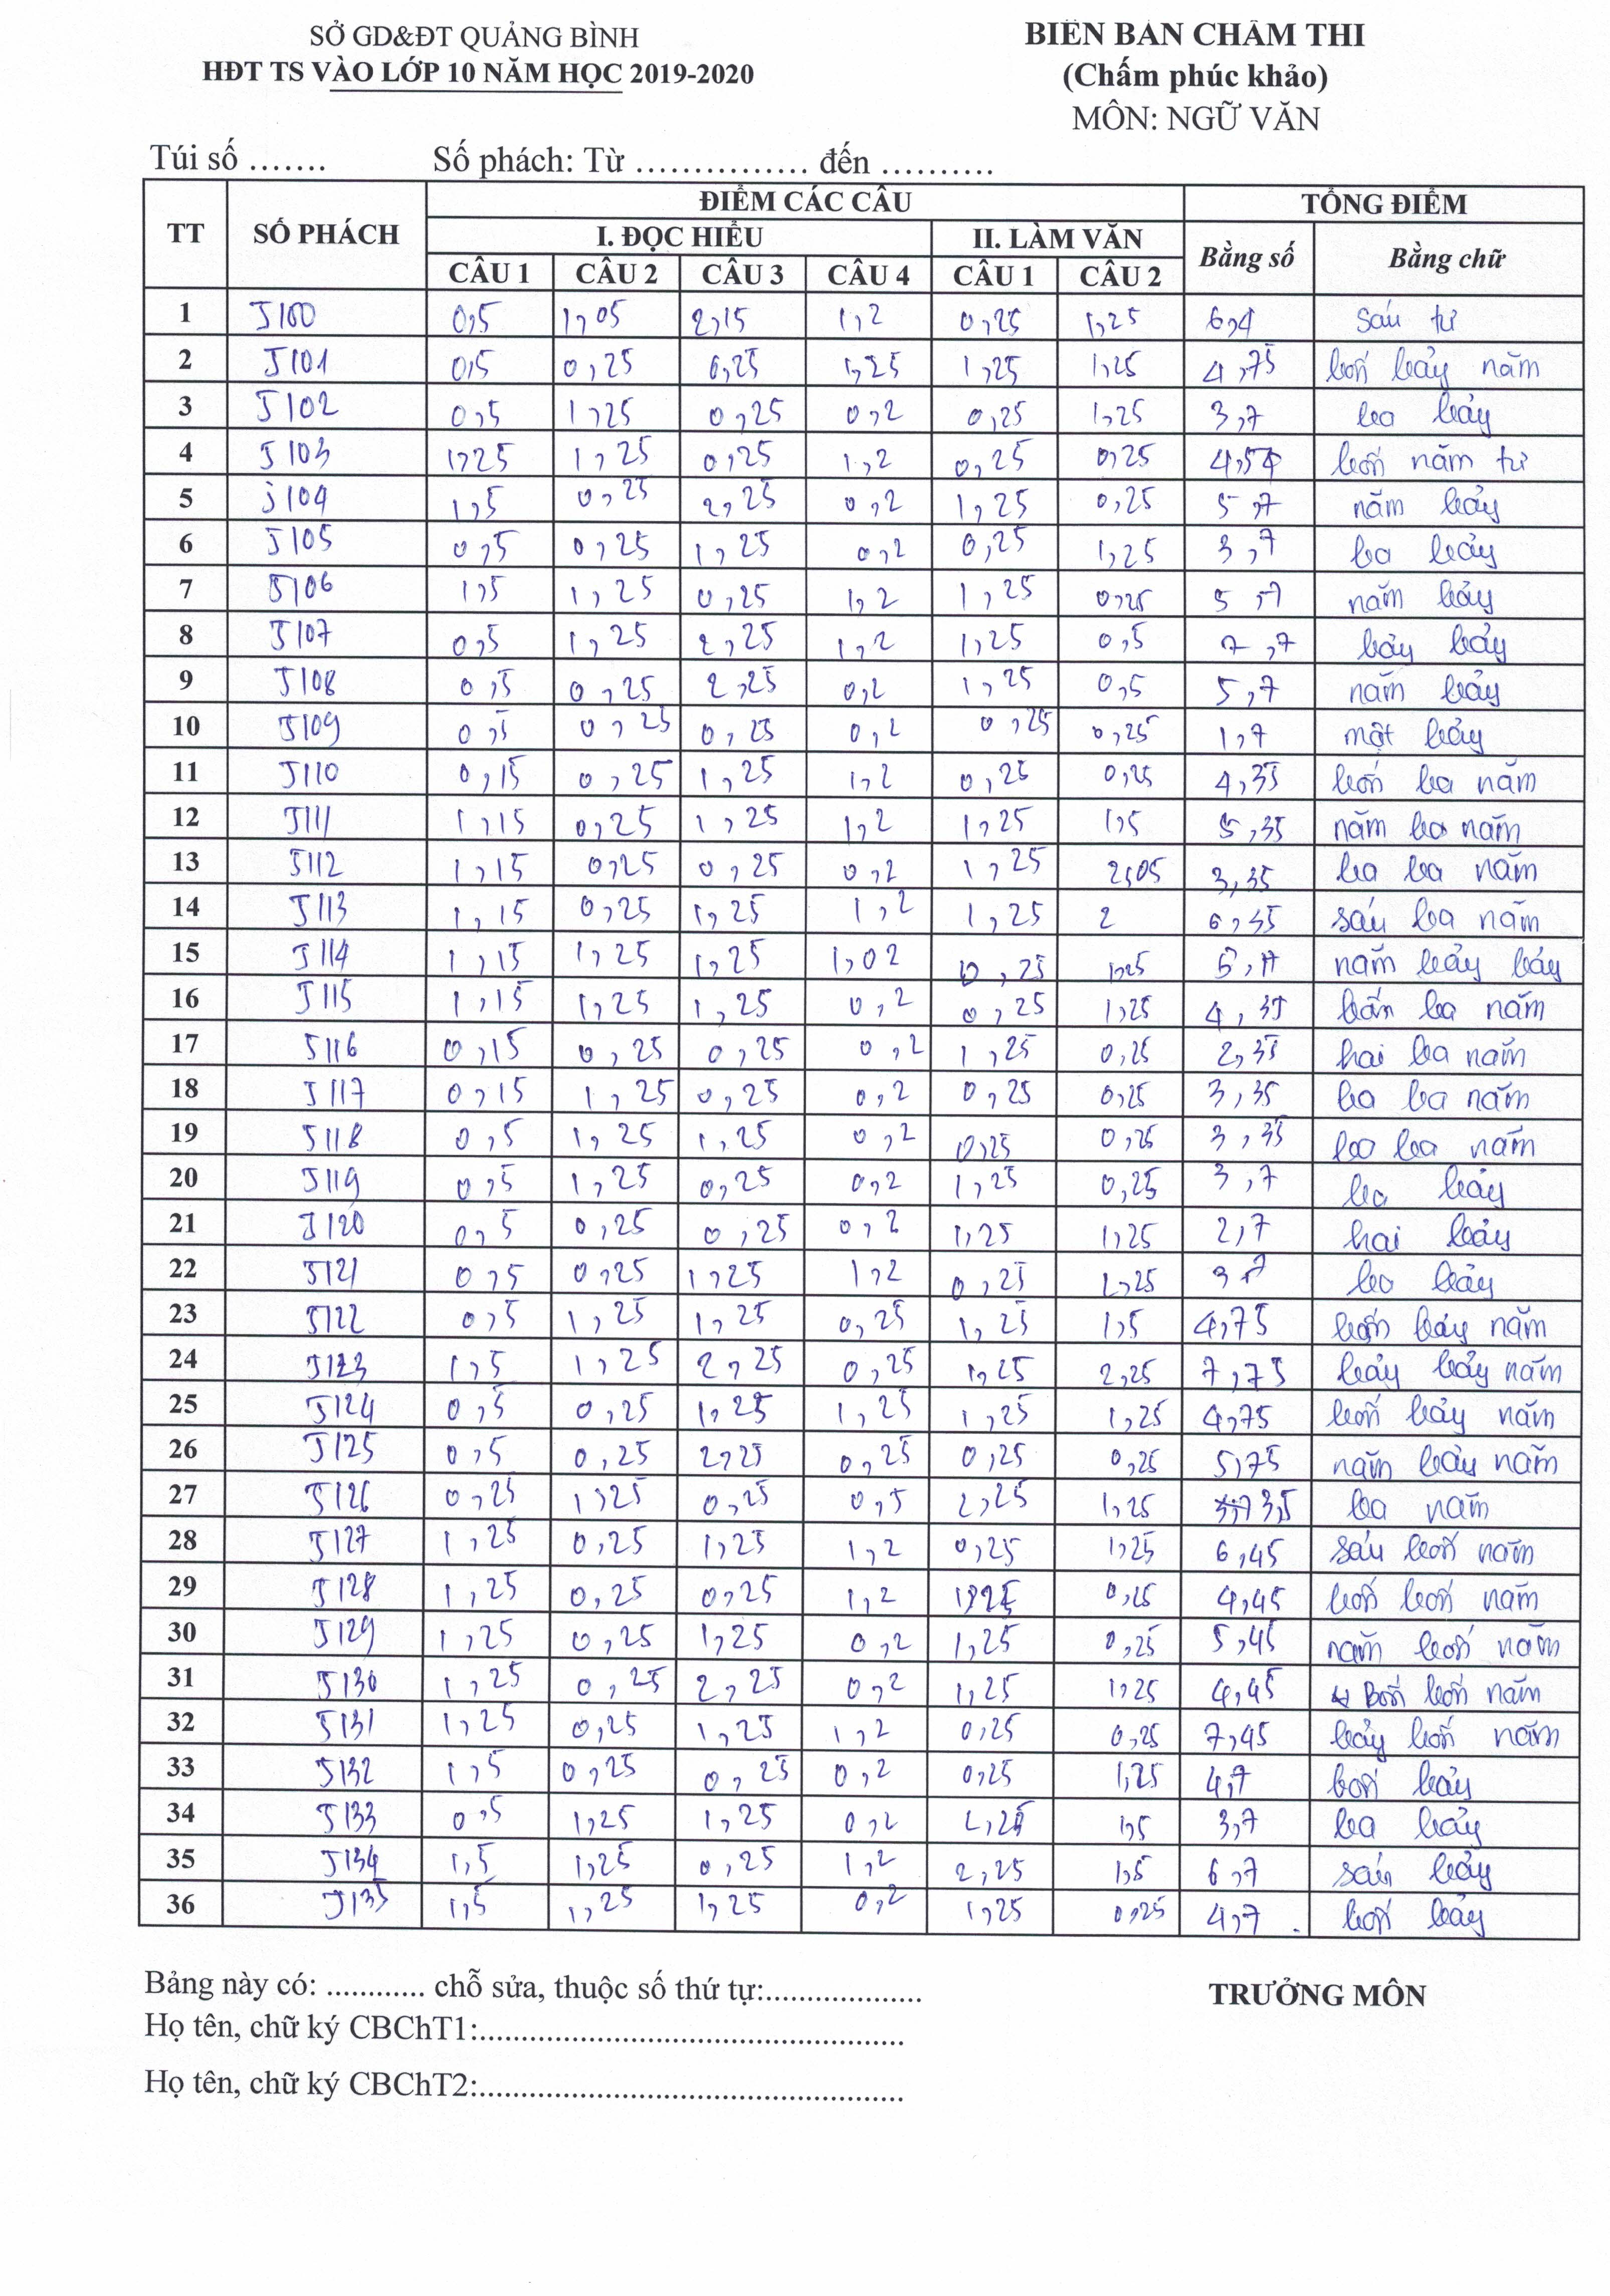 SỞ GD&ĐT QUẢNG BÌNH
HĐT TS VÀO LỚP 10 NĂM HỌC 2019-2020
BIÊN BẢN CHẤM THI
(Chấm phúc khảo)
MÔN: NGỮ VĂN
Túi số ....... Số phách: Từ ................ đến ..........
TT SỐ PHÁCH ĐIỂM CÁC CÂU TỔNG ĐIỂM
I. ĐỌC HIỂU II. LÀM VĂN Bằng số Bằng chữ
CÂU 1 CÂU 2 CÂU 3 CÂU 4 CÂU 1 CÂU 2
1 J100 0,5 1,05 2,15 1,2 0,25 1,25 6,4 sáu tư
2 J101 0,5 0,25 0,25 1,25 1,25 1,25 4,75 bốn bảy năm
3 J102 0,5 1,25 0,25 0,2 0,25 1,25 3,7 ba bảy
4 J103 1,25 1,25 0,25 1,2 0,25 0,25 4,54 bốn năm tư
5 j104 1,5 0,25 2,25 0,2 1,25 0,25 5,7 năm bảy
6 J105 0,5 0,25 1,25 0,2 0,25 1,25 3,7 ba bảy
7 J106 1,5 1,25 0,25 1,2 1,25 0,25 5,7 năm bảy
8 J107 0,5 1,25 2,25 1,2 1,25 0,5 7,7 bảy bảy
9 J108 0,5 0,25 2,25 0,2 1,25 0,5 5,7 năm bảy
10 J109 0,5 0,25 0,25 0,2 0,25 0,25 1,7 một bảy
11 J110 0,15 0,25 1,25 1,2 0,25 0,25 4,35 bốn ba năm
12 J111 1,15 0,25 1,25 1,2 1,25 1,5 5,35 năm ba năm
13 J112 1,15 0,25 0,25 0,2 1,25 2,05 3,35 ba ba năm
14 J113 1,15 0,25 1,25 1,2 1,25 2 6,35 sáu ba năm
15 J114 1,15 1,25 1,25 1,02 0,25 1,25 5,77 năm bảy bảy
16 J115 1,15 1,25 1,25 0,2 0,25 1,25 4,35 bốn ba năm
17 J116 0,15 0,25 0,25 0,2 1,25 0,25 2,35 hai ba năm
18 J117 0,15 1,25 0,25 0,2 0,25 0,25 3,35 ba ba năm
19 J118 0,5 1,25 1,25 0,2 0,25 0,25 3,35 ba ba năm
20 J119 0,5 1,25 0,25 0,2 1,25 0,25 3,7 ba bảy
21 J120 0,5 0,25 0,25 0,2 1,25 1,25 2,7 hai bảy
22 J121 0,5 0,25 1,25 1,2 0,25 1,25 3,7 ba bảy
23 J122 0,5 1,25 1,25 0,25 1,25 1,5 4,75 bốn bảy năm
24 J123 1,5 1,25 2,25 0,25 1,25 2,25 7,75 bảy bảy năm
25 J124 0,5 0,25 1,25 1,25 1,25 1,25 4,75 bốn bảy năm
26 J125 0,5 0,25 2,25 0,25 0,25 0,25 5,75 năm bảy năm
27 J126 0,25 1,25 0,25 0,5 2,25 1,25 3,5 ba năm
28 J127 1,25 0,25 1,25 1,2 0,25 1,25 6,45 sáu bốn năm
29 J128 1,25 0,25 0,25 1,2 1,25 0,25 4,45 bốn bốn năm
30 J129 1,25 0,25 1,25 0,2 1,25 0,25 5,45 năm bốn năm
31 J130 1,25 0,25 2,25 0,2 1,25 1,25 4,45 Bốn bốn năm
32 J131 1,25 0,25 1,25 1,2 0,25 0,25 7,45 bảy bốn năm
33 J132 1,5 0,25 0,25 0,2 0,25 1,25 4,7 bốn bảy
34 J133 0,5 1,25 1,25 0,2 2,25 1,5 3,7 ba bảy
35 J134 1,5 1,25 0,25 1,2 2,25 1,5 6,7 sáu bảy
36 J135 1,5 1,25 1,25 0,2 1,25 0,25 4,7 bốn bảy
Bảng này có: ............ chỗ sửa, thuộc số thứ tự:...................
TRƯỞNG MÔN
Họ tên, chữ ký CBChT1:....................................................
Họ tên, chữ ký CBChT2:....................................................